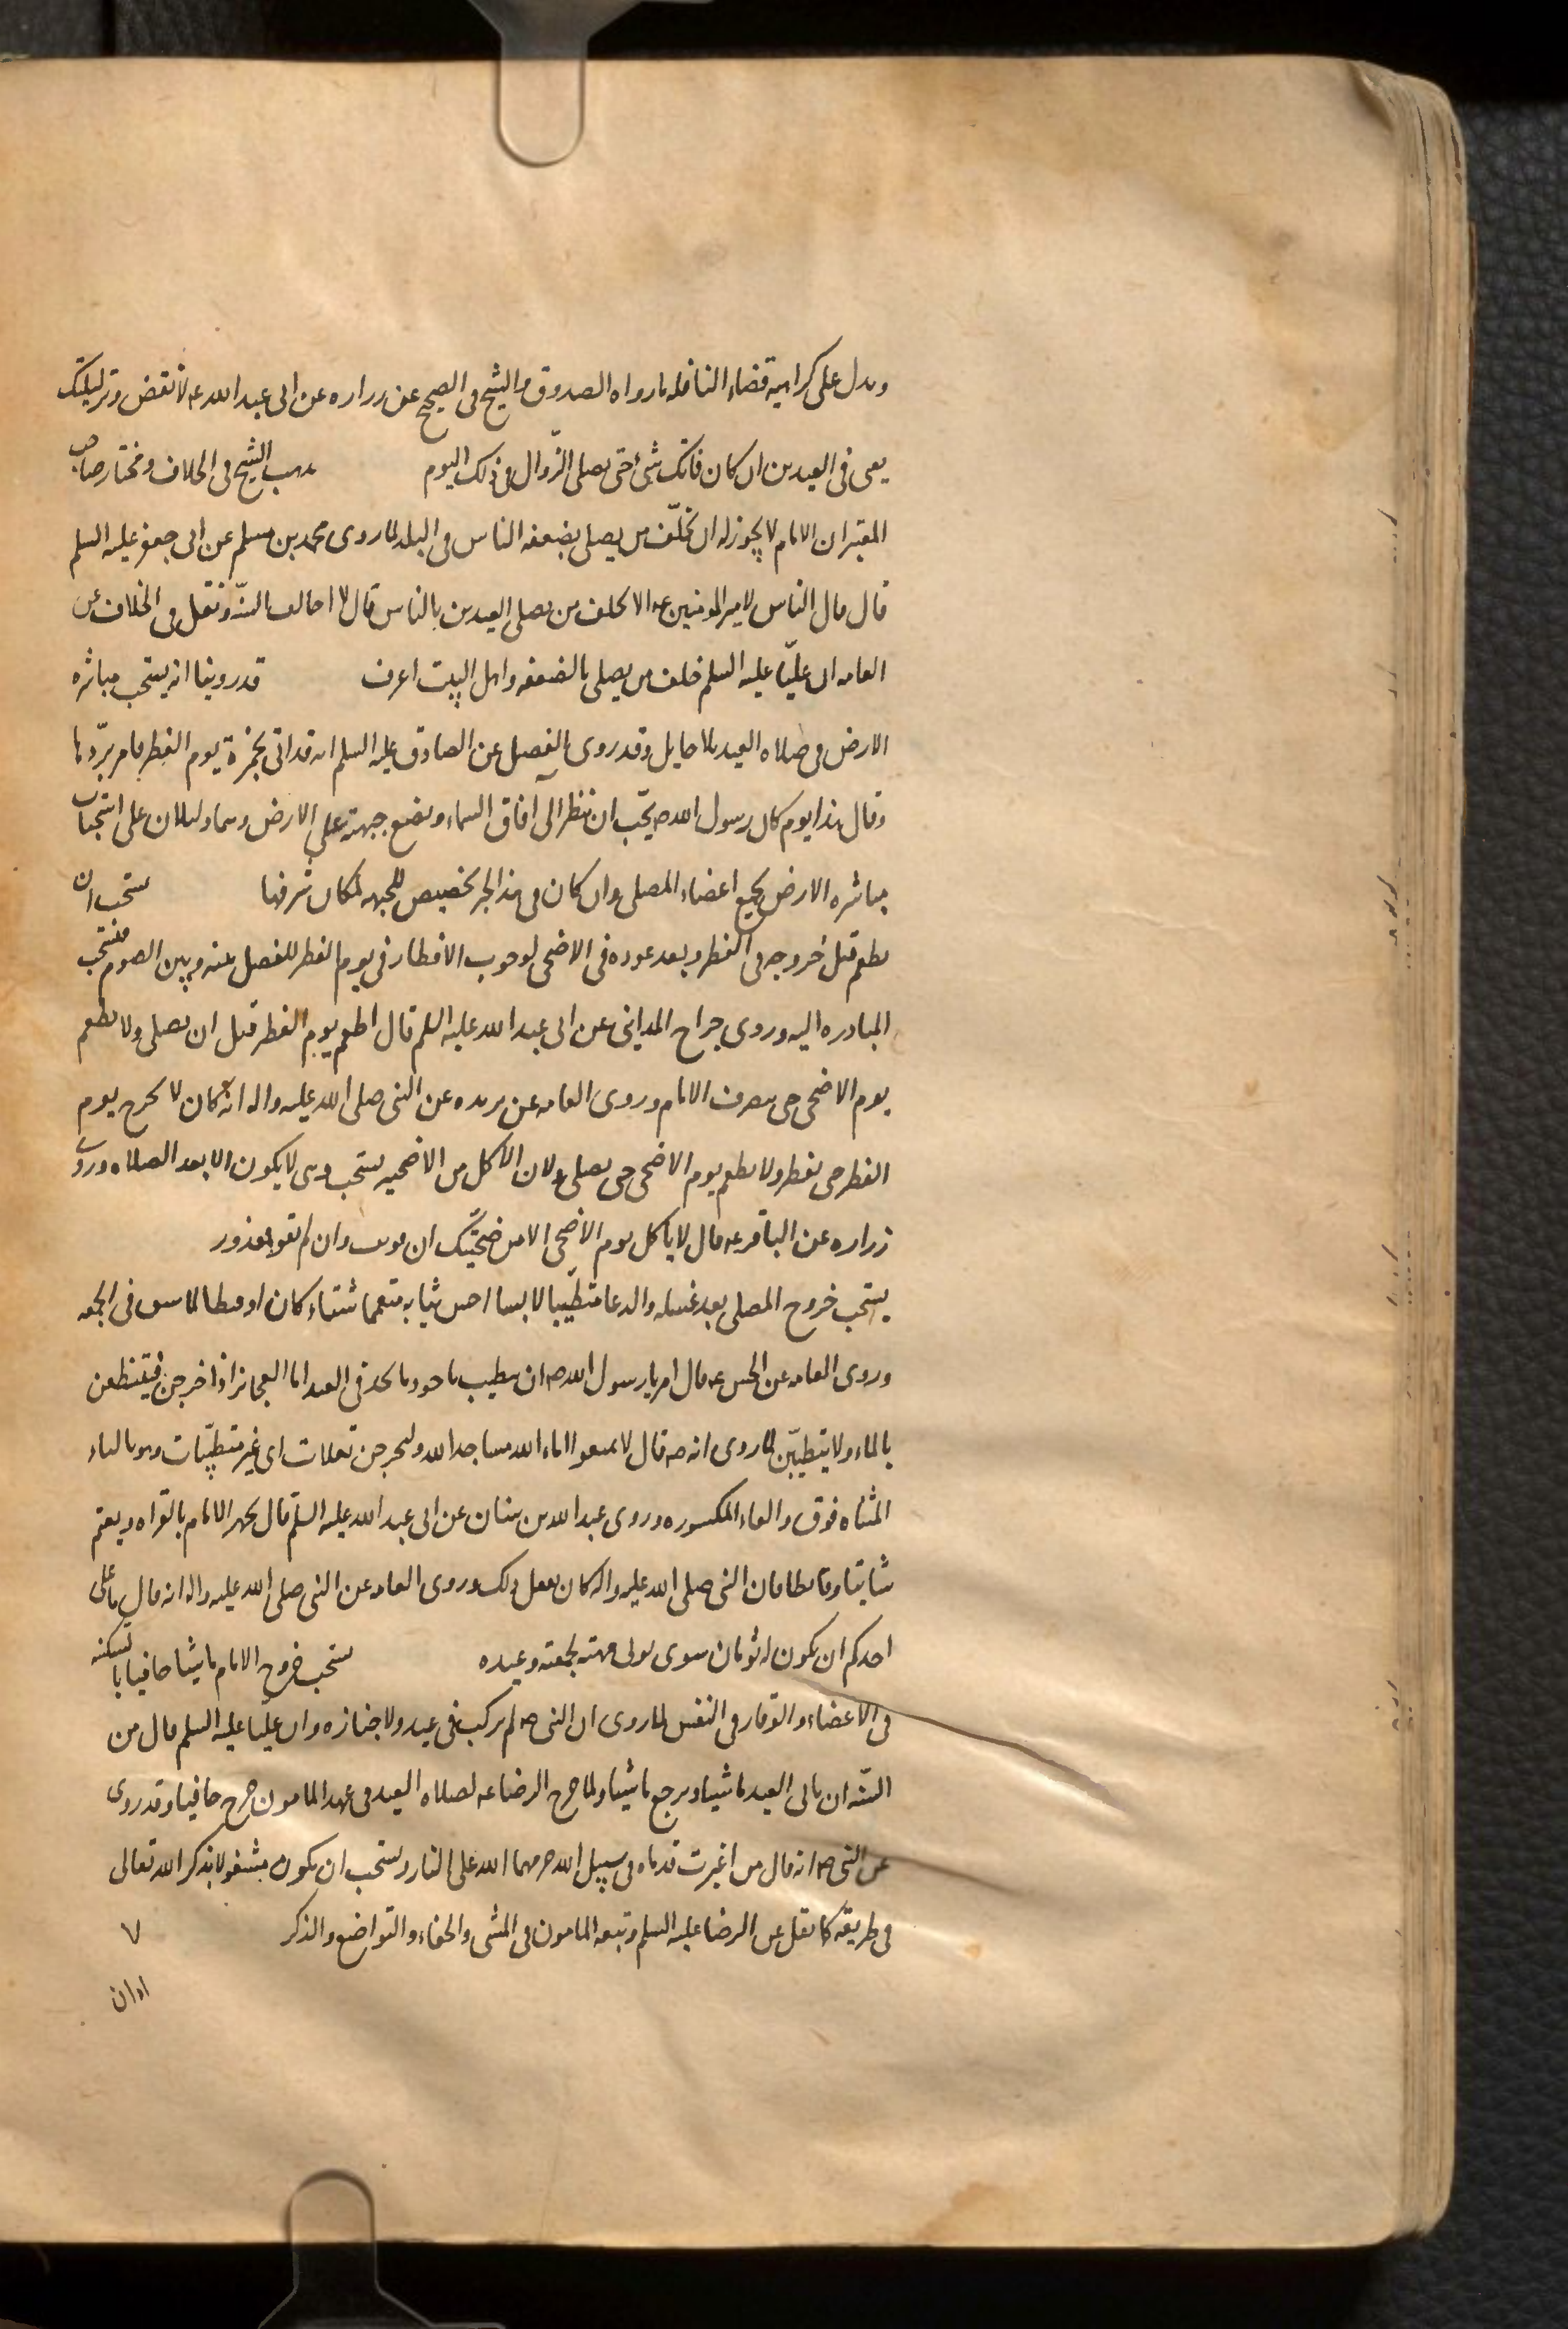 ويدل على كراهية قضاء النافله ما رواه الصدوق والشيخ فى الصحيح عن زراره عن ابى عبد الله عه لا تقض وتر ليلتك
يعنى فى العيدين ان كان فاتك شئ حتى يصلى الزّوال فى ذلك اليوم مذهب الشيخ فى الخلاف ومختار صاحب
المعتبر ان الامام لا يجوز له ان يخلّف من يصلى بضعفه الناس فى البلد لما روى محمد بن مسلم عن ابى جعفر عليه السلم
قال قال الناس لامير المومنين عه الا تخلف من يصلى العيدين بالناس قال لا اخالف السنّة ونقل فى الخلاف عن
العامه ان عليّا عليه السلم خلف من يصلى بالضعفه واهل البيت اعرف قد روينا انه يستحب مباشره
الارض فى صلاه العيد بلا حايل وقد روى الفضيل عن الصادق عليه السلم انه قد اتى بخمرة يوم الفطر فامر بردّها
وقال هذا يوم كان رسول الله صه يحبّ ان ينظر الى آفاق السماء ويضع جبهته على الارض وهما دليلان على استحباب
مباشره الارض بجميع اعضاء المصلى وان كان فى هذا الخبر تخصيص للجبهه لمكان شرفها يستحب ان
يطعم قبل خروجه فى الفطر وبعد عوده فى الاضحى لوجوب الافطار فى يوم الفطر للفصل بينه وبين الصوم فتستحب
المبادره اليه وروى جراح المداينى عن ابى عبد الله عليه السلم قال اطعم يوم الفطر قبل ان يصلى ولا يطعم
يوم الاضحى حتى ينصرف الامام وروى العامه عن بريده عن النبى صلى الله عليه واله انه كان لا يخرج يوم
الفطر حتى يفطر ولا يطعم يوم الاضحى حتى يصلى ولان الاكل من الاضحيه يستحب وهى لا يكون الا بعد الصلاه وروى
زراره عن الباقر عه قال لا يأكل يوم الاضحى الا من ضحيّتك ان قويت وان لم تقو فمعذور
يستحب خروج المصلى بعد غسله والدعا متطيّبا لابسا احسن ثيابه متعمما شتاء كان او قيظا لما سبق فى الجمعه
وروى العامه عن الحسن عه قال امرنا رسول الله صه ان نتطيب باجود ما نجد فى العيد اما العجايز اذا خرجن فيتنظفن
بالماء ولا يتطيبّن لما روى انه صه قال لا تمنعوا اماء الله مساجد الله وليخرجن تفلات اى غير متطيّبات وهو بالتاء
المثناه فوق والفاء المكسوره وروى عبد الله بن سنان عن ابى عبد الله عليه السلم قال يجهر الامام بالقراه ويعتم
شاتيا وقايظا فان النبى صلى الله عليه واله كان يفعل ذلك وروى العامه عن النبى صلى الله عليه واله انه قال ما على
احدكم ان يكون له ثوبان سوى ثوبى مهنته لجمعته وعيده يستحب خروج الامام ماشيا حافيا بالسكينه
فى الاعضاء والوقار فى النفس لما روى ان النبى صه لم يركب فى عيد ولا جنازه وان عليّا عليه السلم قال من
السّنه ان ياتى العيد ماشيا ويرجع ماشيا ولما خرج الرضا عه لصلاه العيد فى عهد المامون خرج حافيا وقد روى
عن النبى صه انه قال من اغبرت قدماه فى سبيل الله حرمهما الله على النار ويستحب ان يكون مشغولا بذكر الله تعالى
فى طريقه كما نقل عن الرضا عليه السلم وتبعه المامون فى المشى والحفاء والتواضع والذكر ٧